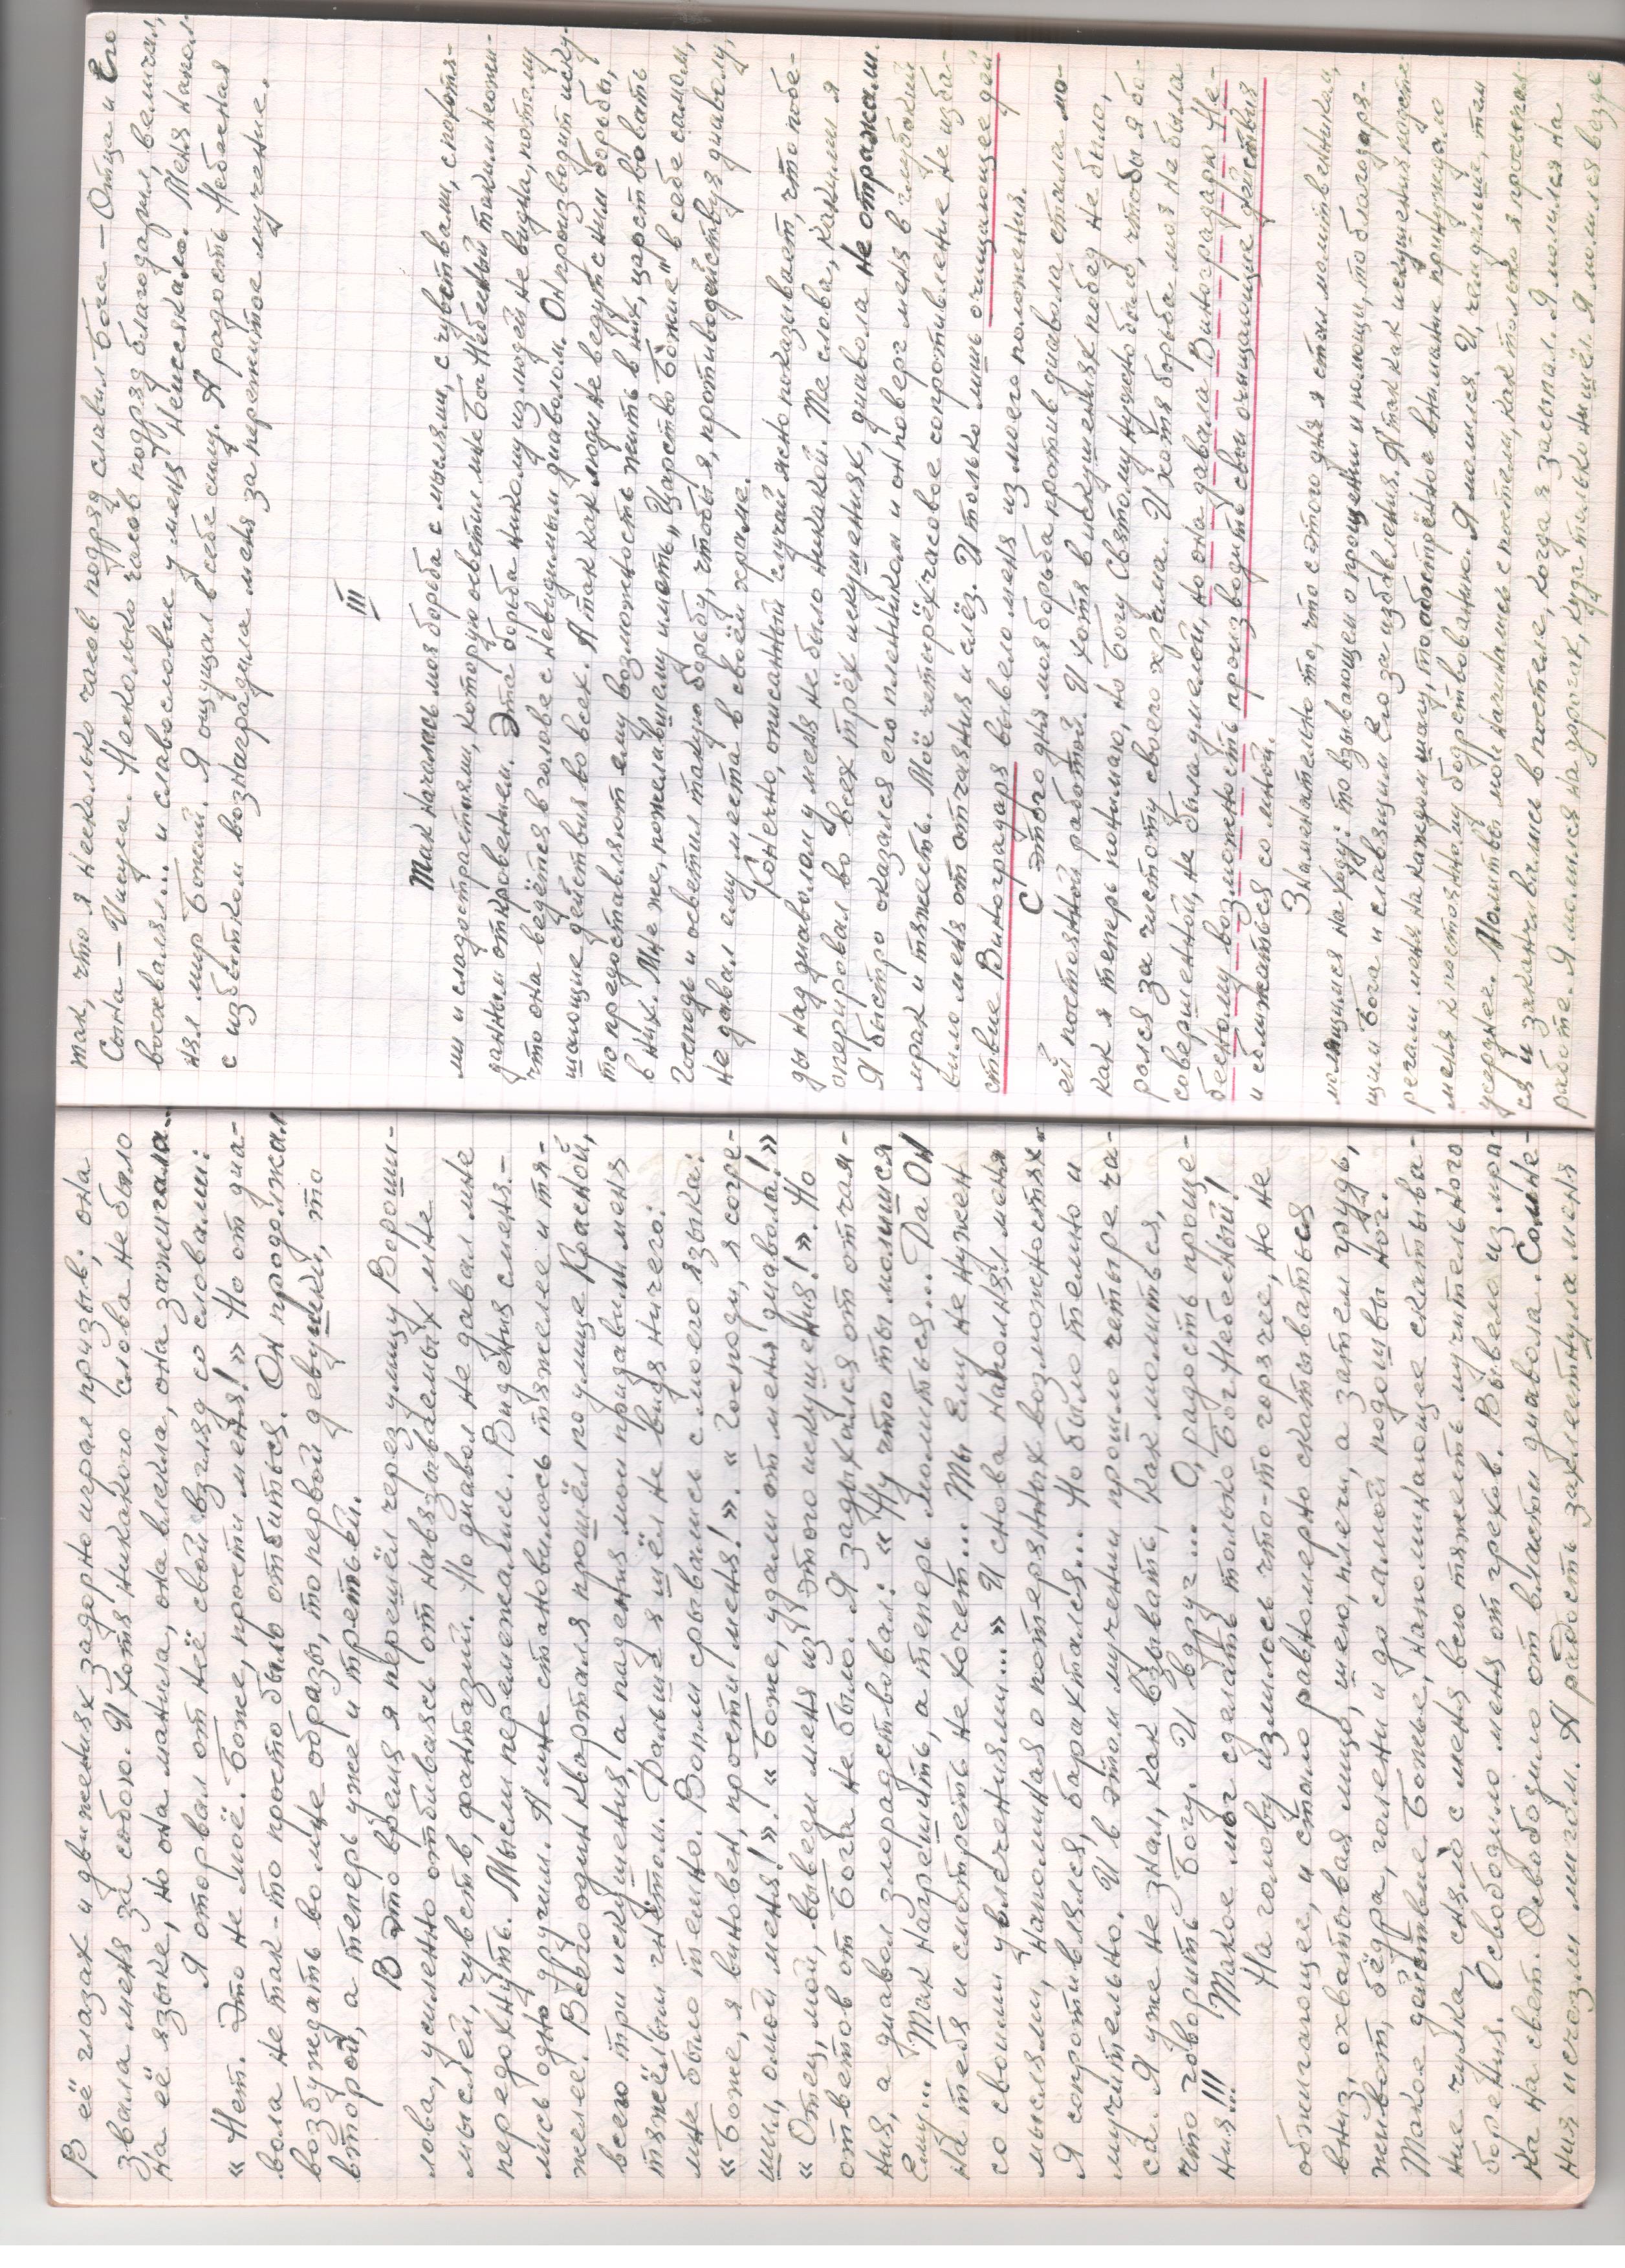 В её глазах и движениях задорно играл призыв: она
звала меня за собою. И хотя никакого слова не было
на её языке, но она манила, она влекла, она зажигала...
Я оторвал от неё свой взгляд со словами:
« Нет. Это не моё. Боже, прости меня! » Но от диа-
вола не так-то просто было отбиться. Он продолжал
возбуждать во мне образы, то первой девушки, то
второй, а теперь уже и третьей.
В это время я перешёл через улицу Вороши-
лова, усиленно отбиваясь от навязываемых мне
мыслей, чувств, фантазий. Но диавол не давал мне
передохнуть. Мысли перемежались. Видения сменя-
лись одно другим. А мне становилось тяжелее и тя-
желее. Всего один квартал я прошёл по улице Красной,
всего три искушения, а падения мои придавили меня
тяжёлым гнётом. Дальше я шёл не видя ничего:
мне было темно. Вопли срывались с моего языка:
« Боже, я виновен, прости меня! ». « Господи, я согре-
шил, омой меня! ». « Боже, удали от меня диавола! »
« Отец, мой, выведи меня из этого искушения! ». Но
ответов от Бога не было. Я задыхался от отчая-
ния, а диавол злорадствовал: « Ну что ты молишься
Ему... Так нагрешить, а теперь молиться... Да Он
на тебя и смотреть не хочет... Ты Ему не нужен
со своими увлечениями... » И снова наполнял меня
мыслями, напоминая о потерянных возможностях.
Я сопротивлялся, барахтался... Но было темно и
мучительно. И в этом мучении прошло четыре ча-
са. Я уже не знал, как взывать, как молиться,
что говорить Богу. И вдруг... О, радость проще-
ния!!! Такое мог сделать только Бог Небесный!
На голову излилось что-то горячее, но не
обжигающее, и стало равномерно скатываться
вниз, охватывая лицо, шею, плечи, а затем грудь,
живот, бёдра, голени и до самой подошвы ног.
Такое действие Божье, напоминающее скатыва-
ние чулка, сняло с меня всю тяжесть мучительного
борения. Освободило меня от грехов. Вывело из мра-
ка на свет. Освободило от власти диавола. Сомне-
ния исчезли мигом. А радость захлестнула меня
так, что я несколько часов подряд славил Бога – Отца и Его
Сына – Иисуса. Несколько часов подряд благодарил, величал,
восхвалял... и славословие у меня не иссякало. Меня напол-
нял мир Божий. Я ощущал в себе силу. А радость Небесная
с избытком вознаградила меня за перенятое мучение.
III
Так началась моя борьба с мыслями, с чувствами, с похотя-
ми и сладострастиями, которую осветил мне Бог Небесный таким неожи-
данным откровением. Эта борьба никому из людей не видна, потому
что она ведётся в голове с невидимым диаволом. Он производит иску-
шающие действия во всех. А так как люди не ведут с ним борьбы,
то предоставляют ему возможность жить в них, царствовать
в них. Мне же, пожелавшему иметь „Царство Божие" в себе самом,
Господь и осветил такую борьбу, чтобы я, противодействуя диаволу,
не давал ему места в своём храме.
Конечно, описанный случай ясно показывает, что побе-
ды над диаволом у меня не было никакой. Те слова, какими я
оперировал во всех трёх искушениях, диавола не отражали.
Я быстро оказался его пленником и он поверг меня в глубокий
мрак и тяжесть. Моё четырёхчасовое сопротивление не изба-
вило меня от отчаяния и слёз. И только лишь очищающее дей-
ствие Виноградаря вывело меня из моего положения.
С этого дня моя борьба против диавола стала мо-
ей постоянной работой. И хотя в искушениях побед не было,
как я теперь понимаю, но Богу Святому нужно было, чтобы я бо-
ролся за чистоту своего храма. И хотя борьба моя не была
совершенной, не была умелой, но она давала Виноградарю Не-
бесному возможность производить свои очищающие действия
и сближаться со мной.
Знаменательно то, что с этого дня я стал молитвенником,
молящимся на ходу: то взывающем о прощении и помощи, то благодаря-
щим Бога и славящим Его за избавления. А так как искушения подсте-
регали меня на каждом шагу, то обострённое внимание принуждало
меня к постоянному бодрствованию. Я молился. И, чаще, тем
усерднее. Молитвы мои начинались с постели, как только я просыпал-
ся и заканчивались в постели, когда я засыпал. Я молился на
работе. Я молился на дорогах, куда только ни шёл. Я молился везде